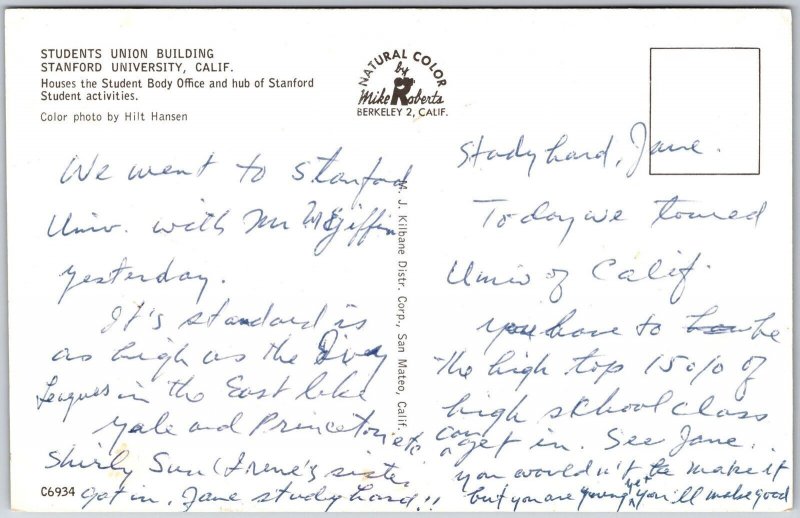 STUDENTS UNION BUILDING
STANFORD UNIVERSITY, CALIF.
Houses the Student Body Office and hub of Stanford
Student activities.
Color photo by Hilt Hansen
NATURAL COLOR
by
Mike Roberts
BERKELEY 2, CALIF.
We went to Stanford
Univ. with Mr McGiffin
yesterday.
It's standard is
as high as the Ivey
Leagues in the East like
Yale and Princeton etc
Shirly Sun (Irene's sister
got in. Jane study hard!!
C6934
M. J. Kilbane Distr. Corp., San Mateo, Calif.
Study hard, Jane.
Today we toured
Univ of Calif.
you have to be
the high top 15% of
high school class
can get in. See Jane..
you wouldn't make it
but you are young yet you'll make good